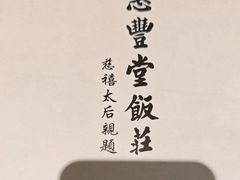 惠豐堂飯莊
慈禧太后親題